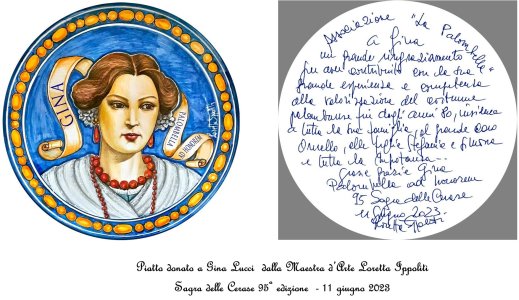 GINA
PALOMBELLA
AD HONOREM
Associazione "La Palombella"
A Gina
un grande ringraziamento
per aver contribuito con la sua
grande esperienza e competenza
alla valorizzazione del costume
palombarese fin dagli anni 80, insieme
a tutta la sua famiglia, al grande
Ornello, alle figlie Stefania e Simona
e tutta la
Grazie grazie Gina
Palombella ad honorem
95 Sagra delle Cerase
11 Giugno 2023
Loretta Ippoliti
Piatto donato a Gina Lucci dalla Maestra d'Arte Loretta Ippoliti
Sagra delle Cerase 95° edizione - 11 giugno 2023